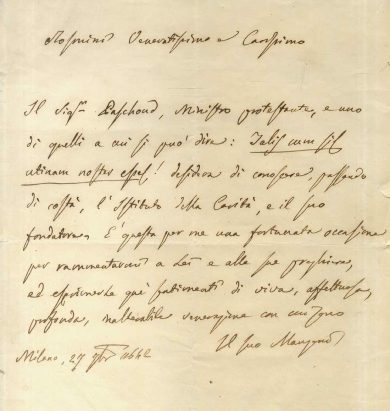 Rosmini Veneratissimo e Carissimo
Il Sigr Paschoud, Ministro protestante, e uno
di quelli a cui si può dire: Talis cum sis
utinam noster esses! desidera di conoscere, passando
di costà, l'Istituto della Carità, e il suo
fondatore. È questa per me una fortunata occasione
per rammentarmi a Lei e alle sue preghiere,
ed esprimerle que' sentimenti di viva, affettuosa,
profonda, inalterabile venerazione con cui sono
Il suo Manzoni
Milano, 27 9br